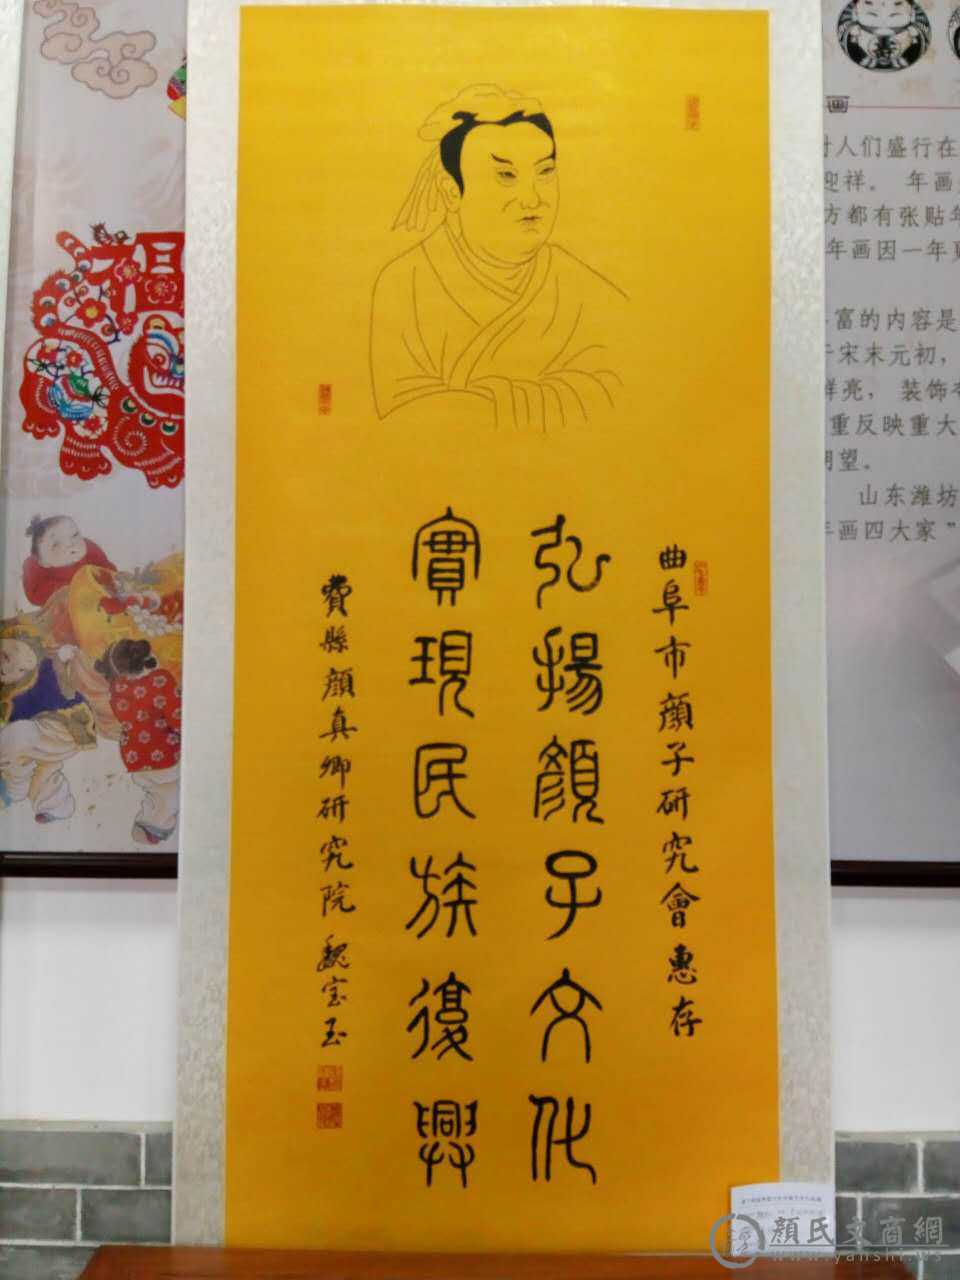 曲阜市顔子研究會惠存
弘揚顔子文化
實現民族復興
費縣顔真卿研究院 魏宝玉
画
人们盛行在
迎祥。 年画
方都有张贴年
年画因一年更
富的内容是
于宋末元初，
鲜亮， 装饰
重反映重大
期望。
山东潍坊
年画四大家”
顔氏文商網
www.yanshi.ws